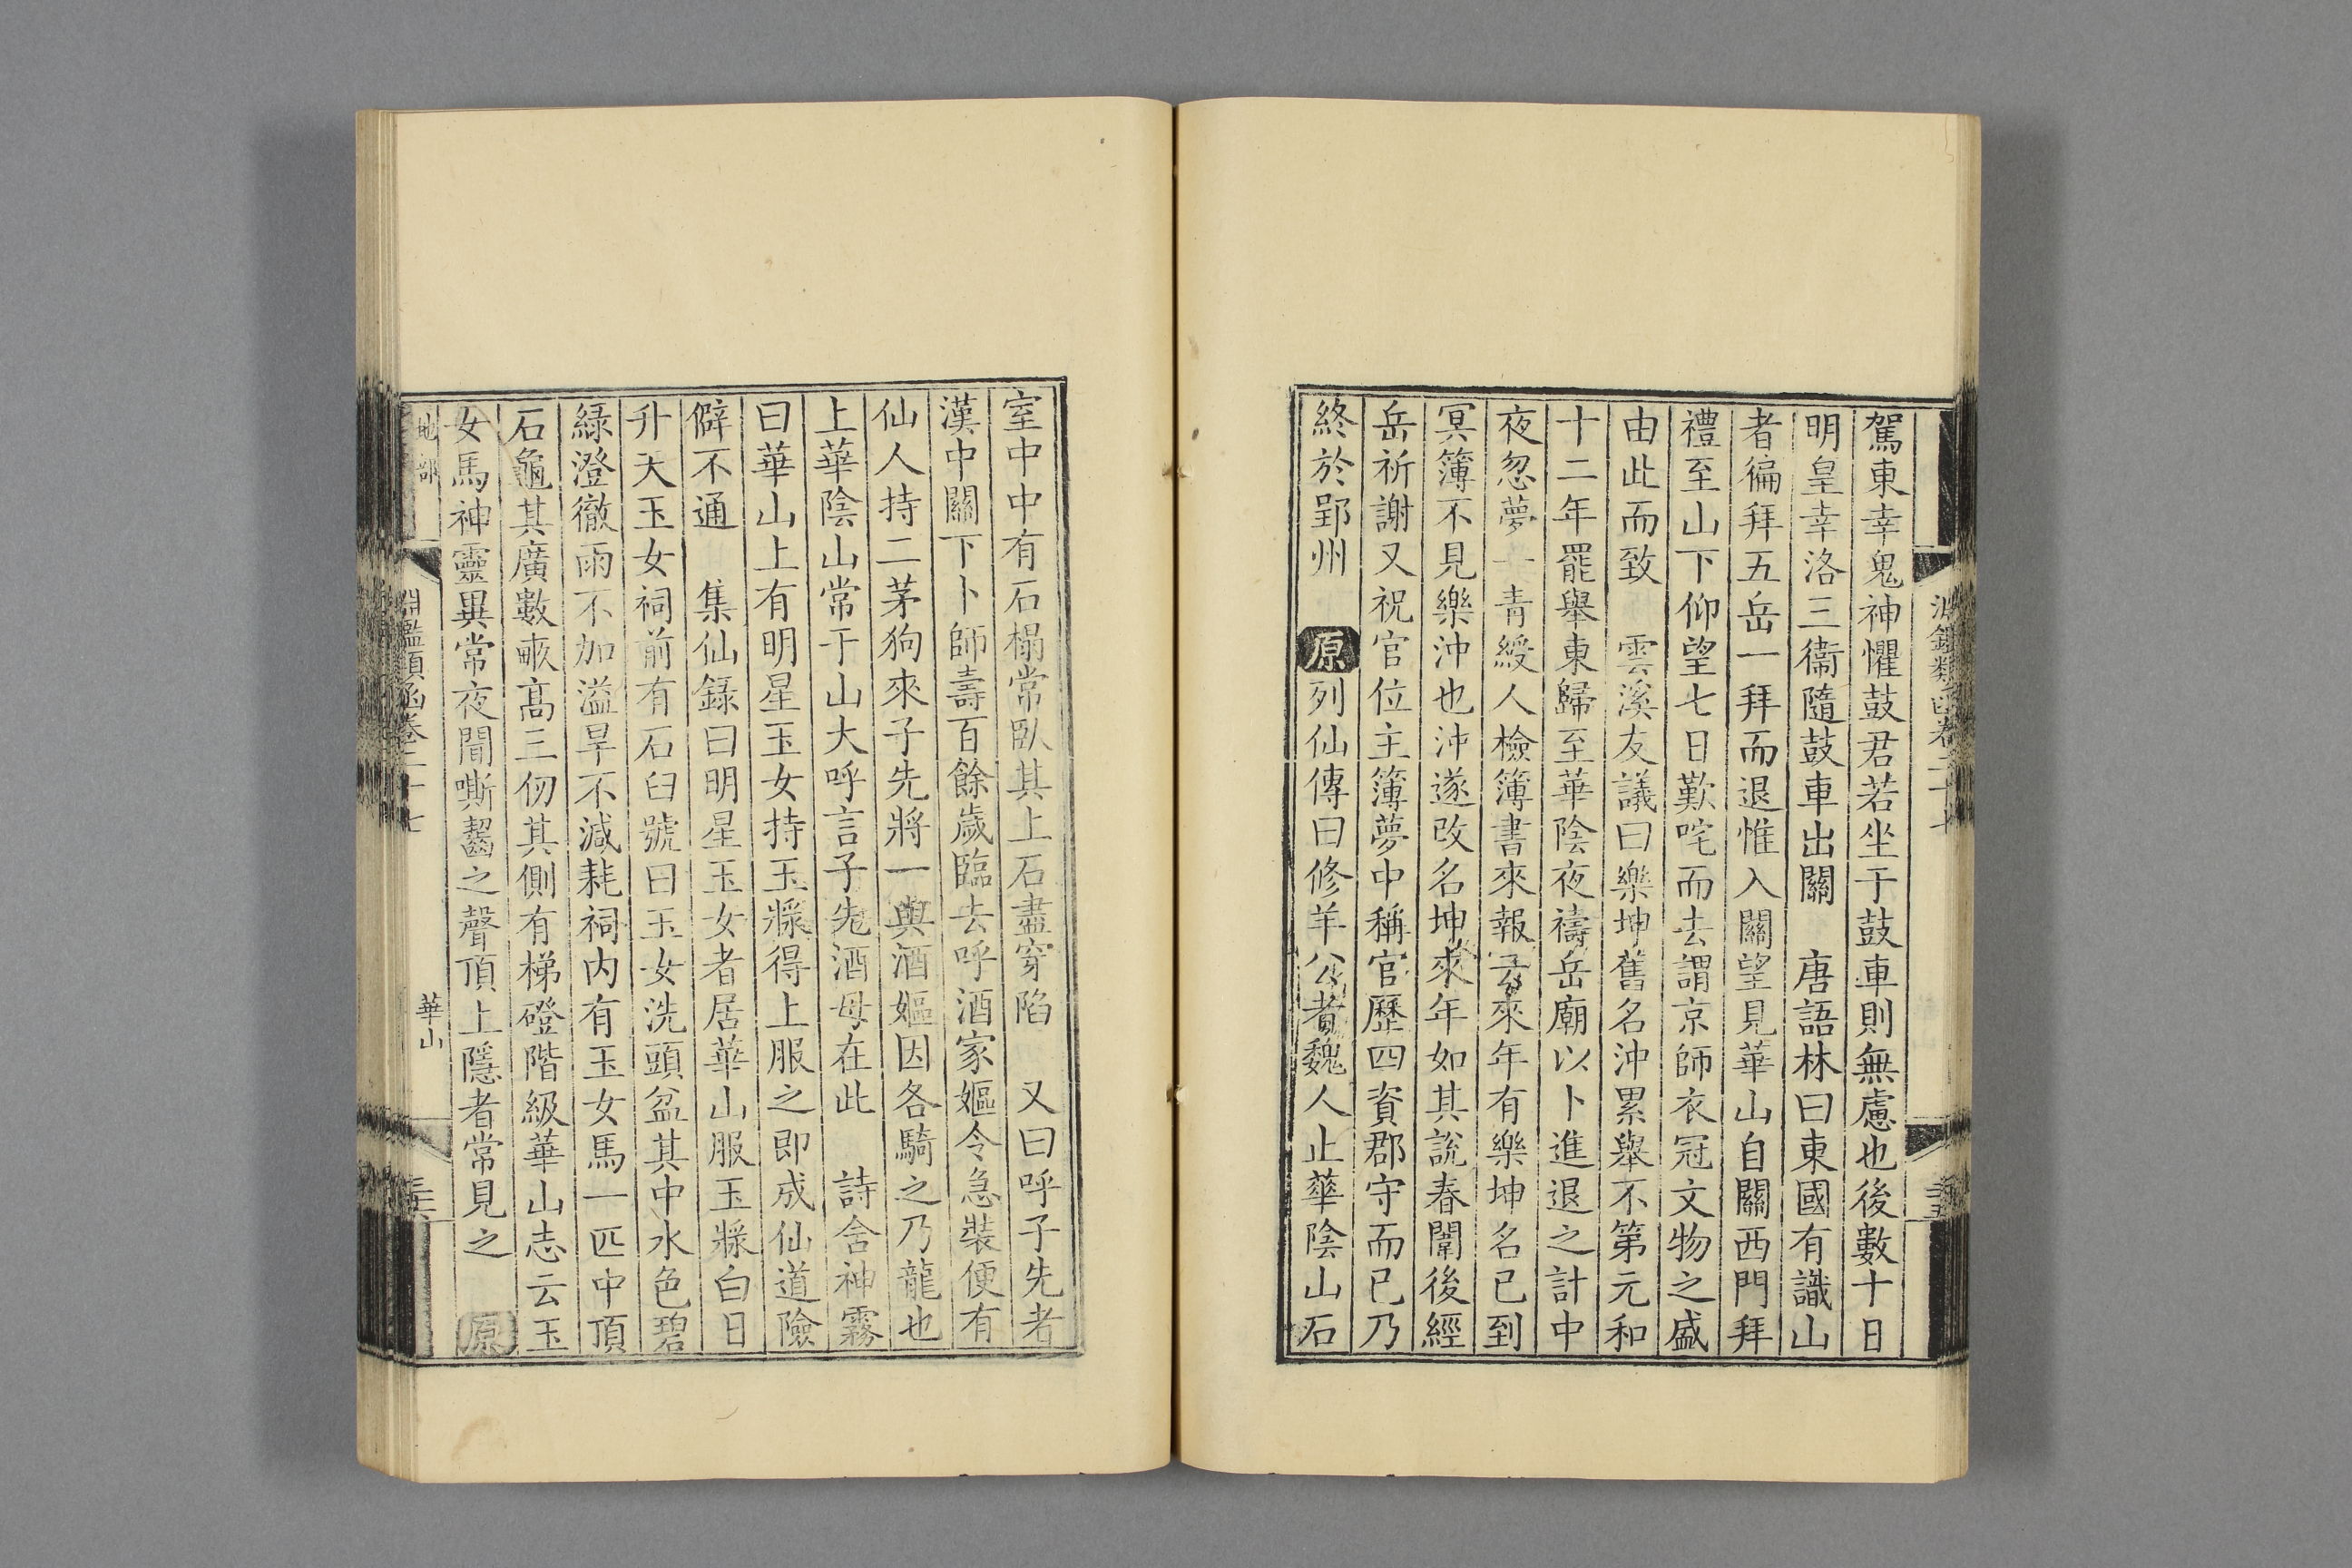 淵鑑類函卷二十七
駕東幸鬼神懼鼓君若坐于鼓車則無慮也後數十日
明皇幸洛三衞隨鼓車出關　唐語林曰東國有識山
者徧拜五岳一拜而退惟入關望見華山自關西門拜
禮至山下仰望七日歎咤而去謂京師衣冠文物之盛
由此而致　雲溪友議曰樂坤舊名沖累舉不第元和
十二年罷舉東歸至華陰夜禱岳廟以卜進退之計中
夜忽夢一青綬人檢簿書來報云來年有樂坤名已到
冥簿不見樂沖也沖遂改名坤來年如其說春闈後經
岳祈謝又祝官位主簿夢中稱官歷四資郡守而已乃
終於郢州　原列仙傳曰修羊公者魏人止華陰山石
室中中有石榻常臥其上石盡穿陷　又曰呼子先者
漢中關下卜師壽百餘歲臨去呼酒家嫗令急裝便有
仙人持二茅狗來子先將一與酒嫗因各騎之乃龍也
上華陰山常于山大呼言子先酒母在此　詩含神霧
曰華山上有明星玉女持玉漿得上服之即成仙道險
僻不通　集仙錄曰明星玉女者居華山服玉漿白日
升天玉女祠前有石臼號曰玉女洗頭盆其中水色碧
綠澄徹雨不加溢旱不減耗祠内有玉女馬一匹中頂
石龜其廣數畞髙三仞其側有梯磴階級華山志云玉
女馬神靈異常夜間嘶齧之聲頂上隱者常見之　原
地部　淵鑑類函卷二十七　華山